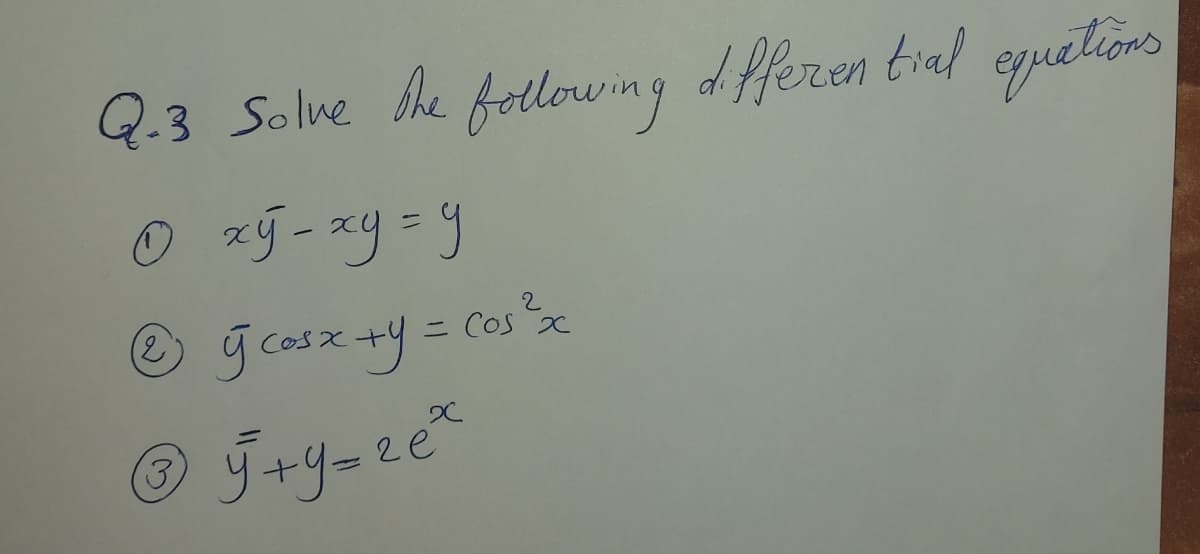 Q.3 Solve the following differen tial equations
① xȳ - xy = y
② ȳ cosx + y = Cos²x
③ y̿ + y = 2e^x